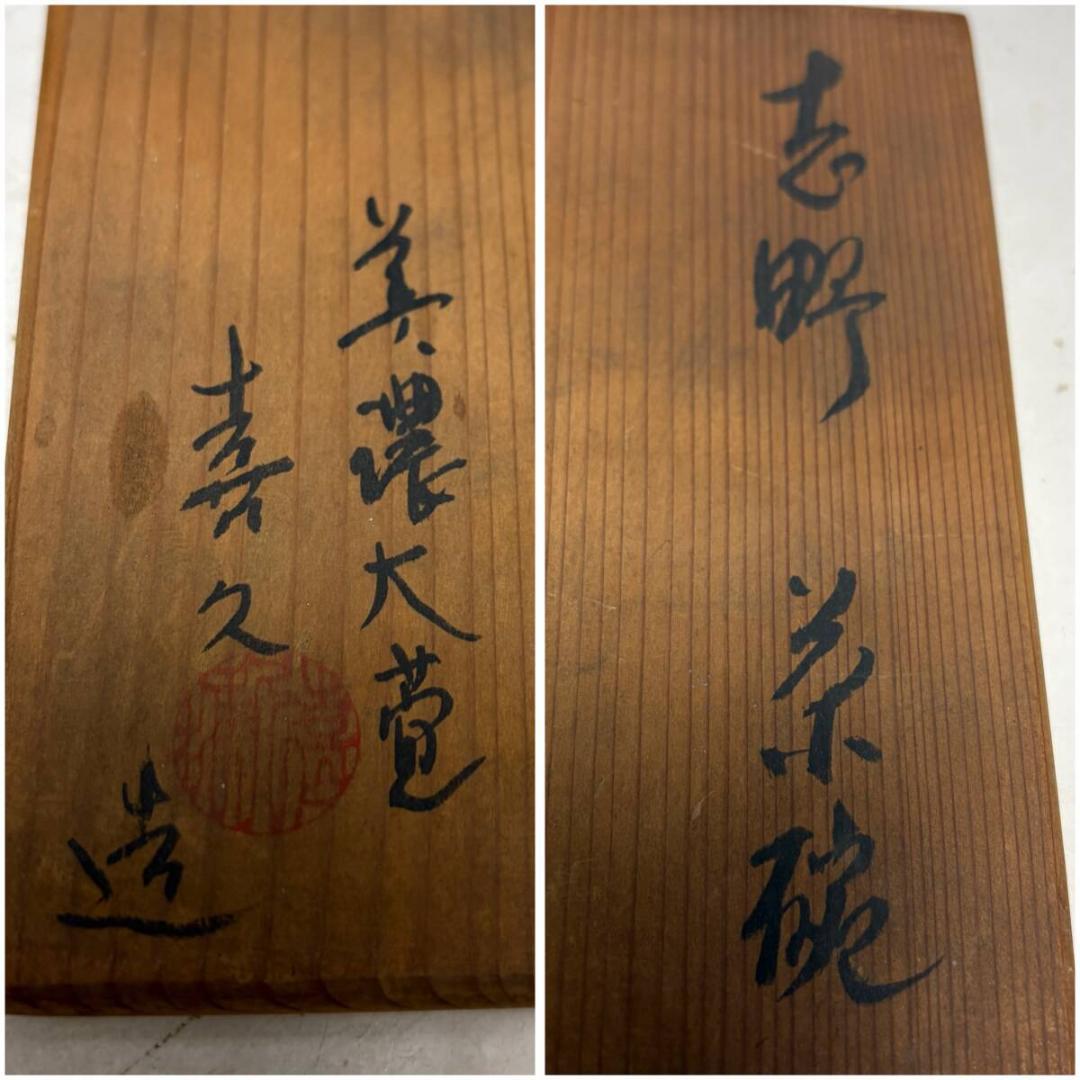 志野 茶碗
美濃大萱
喜久
造